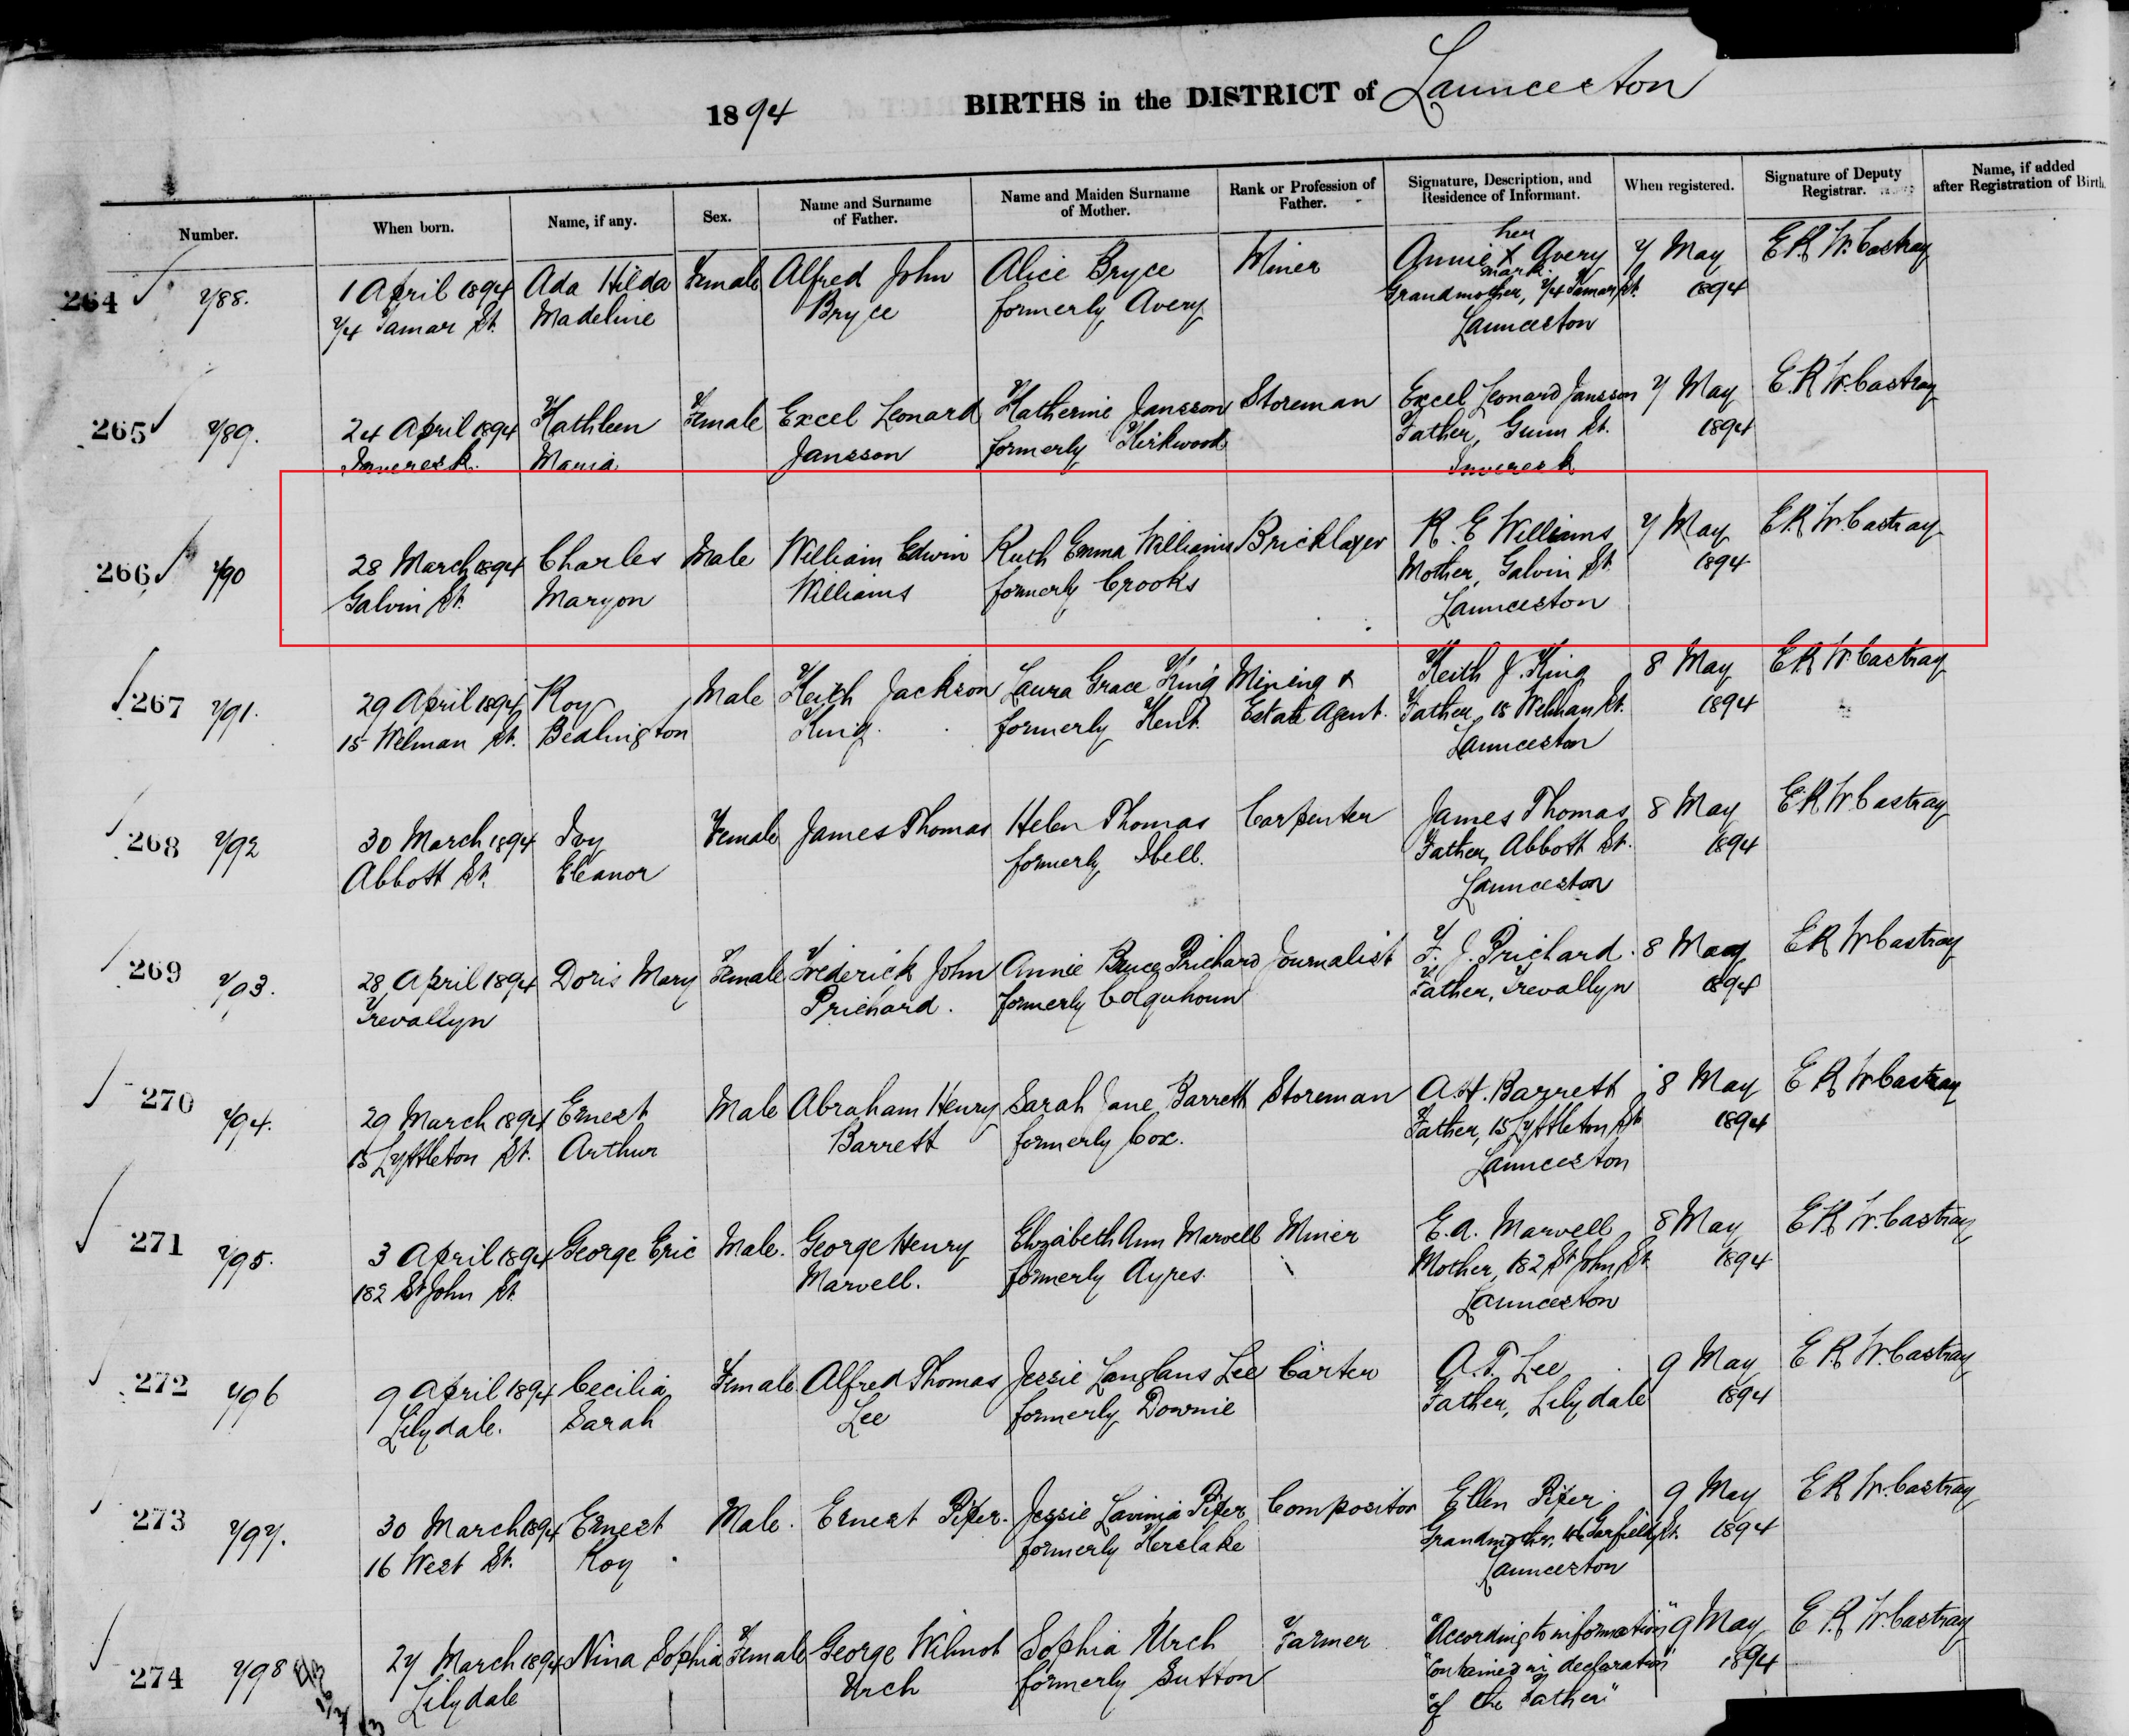 1894 BIRTHS in the DISTRICT of Launceston
Number. When born. Name, if any. Sex. Name and Surname of Father. Name and Maiden Surname of Mother. Rank or Profession of Father. Signature, Description, and Residence of Informant. When registered. Signature of Deputy Registrar. Name, if added after Registration of Birth.
her
264 788. 1 April 1894 Ada Hilda Female Alfred John Alice Bryce Miner Annie X Avery 7 May E.R.W. Castray
mark.
74 Tamar St. Madeline Bryce formerly Avery Grandmother, 74 Tamar St. 1894
Launceston
265 789. 24 April 1894 Kathleen Female Excel Leonard Katherine Jansson Storeman Excel Leonard Jansson 7 May E.R.W. Castray
Inveresk. Maria Jansson formerly Kirkwood Father, Gunn St. 1894
Inveresk
266 790 28 March 1894 Charles Male William Edwin Ruth Emma Williams Bricklayer R. E Williams 7 May E.R.W. Castray
Galvin St. Maryon Williams formerly Crooks Mother, Galvin St. 1894
Launceston
267 791. 29 April 1894 Roy Male Keith Jackson Laura Grace King Mining & Keith J. King 8 May E.R.W. Castray
15 Welman St. Bedlington King. formerly Kent. Estate Agent. Father, 15 Welman St. 1894
Launceston
268 792 30 March 1894 Ivy Female James Thomas Helen Thomas Carpenter James Thomas 8 May E.R.W. Castray
Abbott St. Eleanor formerly Ibell. Father, Abbott St. 1894
Launceston
269 793. 28 April 1894 Doris Mary Female Frederick John Annie Bruce Prichard Journalist F. J. Prichard. 8 May E.R.W. Castray
Trevallyn Prichard. formerly Colquhoun Father, Trevallyn 1894
270 794. 29 March 1894 Ernest Male Abraham Henry Sarah Jane Barrett Storeman A.H. Barrett 8 May E.R.W. Castray
15 Lyttleton St. Arthur Barrett formerly Cox. Father, 15 Lyttleton St. 1894
Launceston
271 795. 3 April 1894 George Eric Male. George Henry Elizabeth Ann Marvell Miner E.A. Marvell 8 May E.R.W. Castray
182 St John St. Marvell. formerly Ayres. Mother, 182 St John St. 1894
Launceston
272 796 9 April 1894 Cecilia Female Alfred Thomas Jessie Langlans Lee Carter A.T. Lee 9 May E.R.W. Castray
Lilydale. Sarah Lee formerly Downie Father, Lilydale 1894
273 797. 30 March 1894 Ernest Male. Ernest Piper. Jessie Lavinia Piper Compositor Ellen Piper. 9 May E.R.W. Castray
16 West St. Roy formerly Kerslake Grandmother, 46 Garfield St. 1894
Launceston
274 798 27 March 1894 Nina Sophia Female George Wilmot Sophia Urch Farmer "According to information" 9 May E.R.W. Castray
Lilydale Urch formerly Sutton "contained in declaration" 1894
"of the Father"